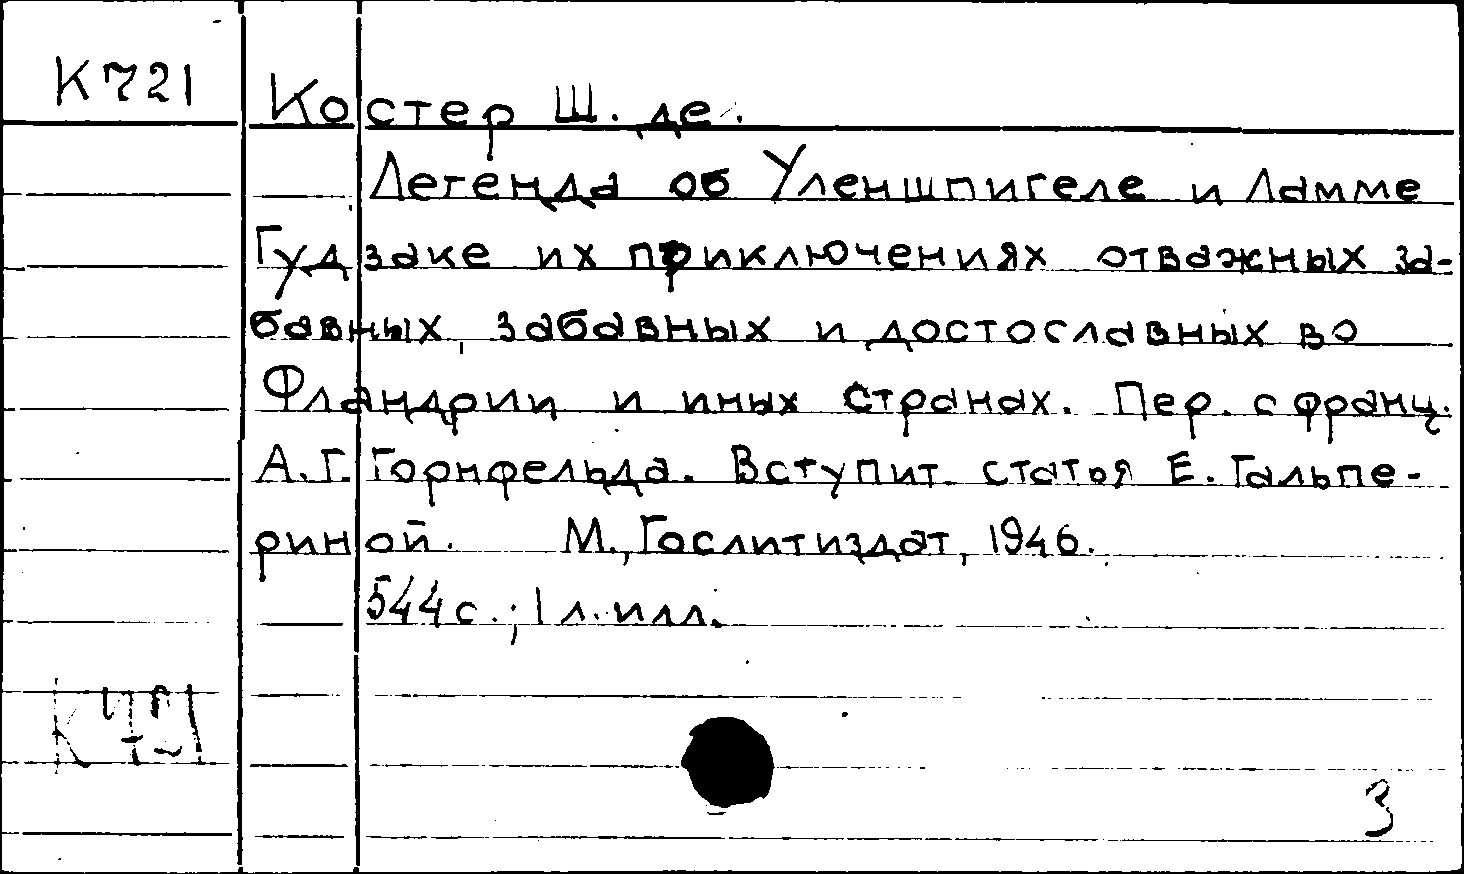 К721
Костер Ш. де.
Легенда об Уленшпигеле и Ламме
Гудзаке их приключениях отважных за-
бавных, забавных и достославных во
Фландрии и иных странах. Пер. с франц.
А.Г. Горнфельда. Вступит. статья Е. Гальпе-
риной. М., Гослитиздат, 1946.
544 с.; 1 л. илл.
К721
3